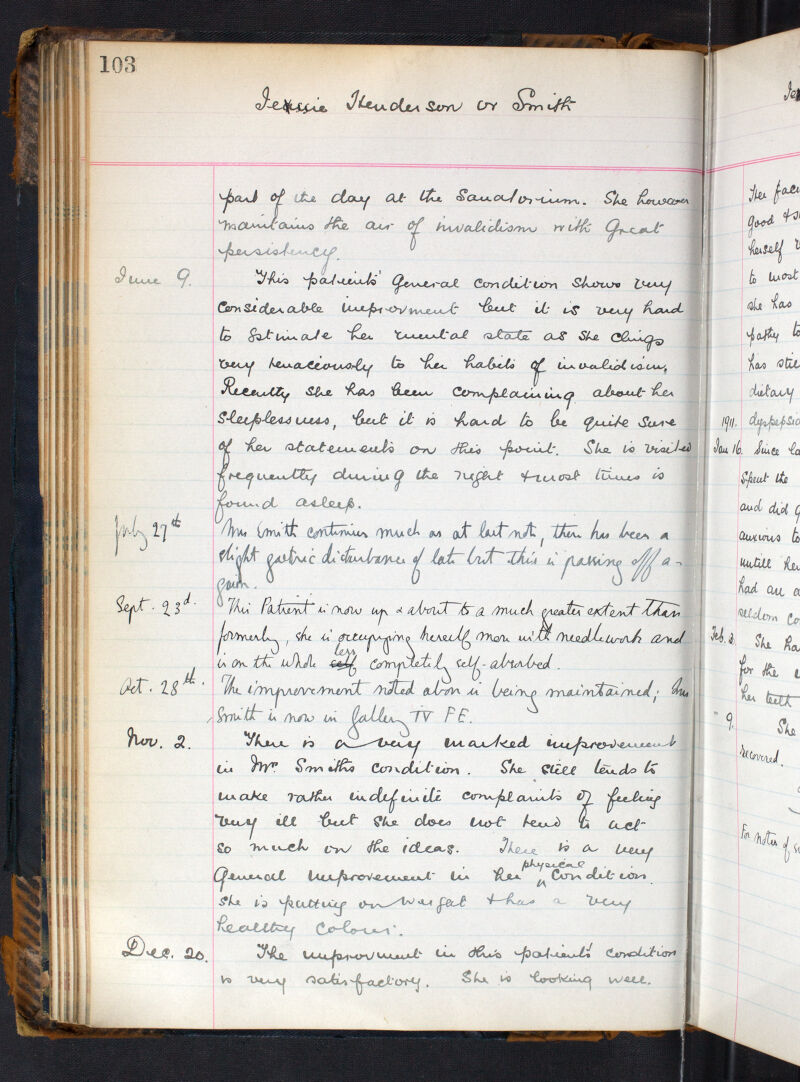 103
Jessie Henderson or Smith
part of the day at the Sanatorium. She however
maintains the air of invalidism with Great
persistency.
June 9. This patients' General condition shows very
considerable improvment but it is very hard
to Estimate her mental state as she clings
very tenaciously to her habits of invalidism,
Recently she has been complaining about her
Sleeplessness, but it is hard to be quite sure
of her statements on this point. She is visited
frequently during the night & most times is
found asleep.
July 27th Mrs Smith continues much as at last note, there has been a
slight gastric disturbance of late but this is passing off a-
gain.
Sept. 23d. This Patient is now up & about to a much greater extent than
formerly, she is occupying herself more with needlework and
is on the whole less completely self-absorbed.
Oct. 28th. The improvement noted above is being maintained; Mrs
Smith is now in Gallery IV F E.
Nov. 2. There is a very marked improvement
in Mrs Smiths condition. She still tends to
make rather indefinite complaints of feeling
very ill but she does not tend to act
so much on the ideas. There is a very
General improvement in her physical condition.
she is putting on weight & has a very
healthy colour.
Dec. 20. The improvment in this patient's condition
is very satisfactory. She is looking well.
Her
good
herself
to most
she has
has
dietary
1911.
Jan 16. Since
Spent the
and did
anxious to
untill her
had an
seldom
Feb. 3. She
for the
her teeth
" 9. She
recovered.
For notes of